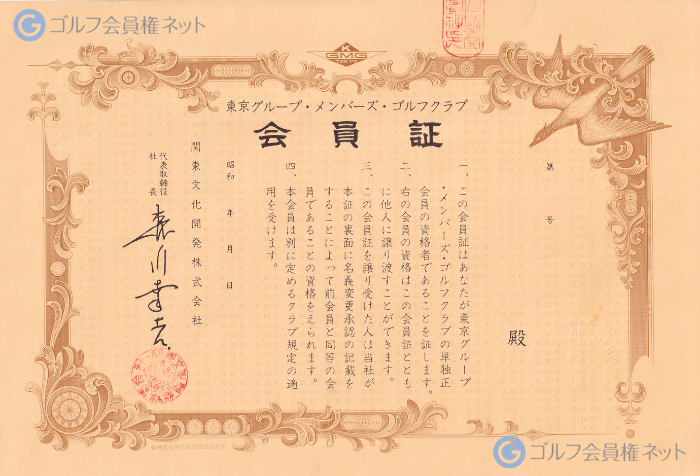 ゴルフ会員権ネット
K
GMG
TOKYO
東京グループ・メンバーズ・ゴルフクラブ
会員証
第　号
殿
一、この会員証はあなたが東京グループ
・メンバーズ・ゴルフクラブの単独正
会員の資格者であることを証します。
二、右の会員の資格はこの会員証ととも
に他人に譲り渡すことができます。
三、この会員証を譲り受けた人は当社が
本証の裏面に名義変更承認の記載を
することによって前会員と同等の会
員であることの資格をえられます。
四、本会員は別に定めるクラブ規定の適
用を受けます。
昭和　年　月　日
関東文化開発株式会社
代表取締役
社長
ゴルフ会員権ネット